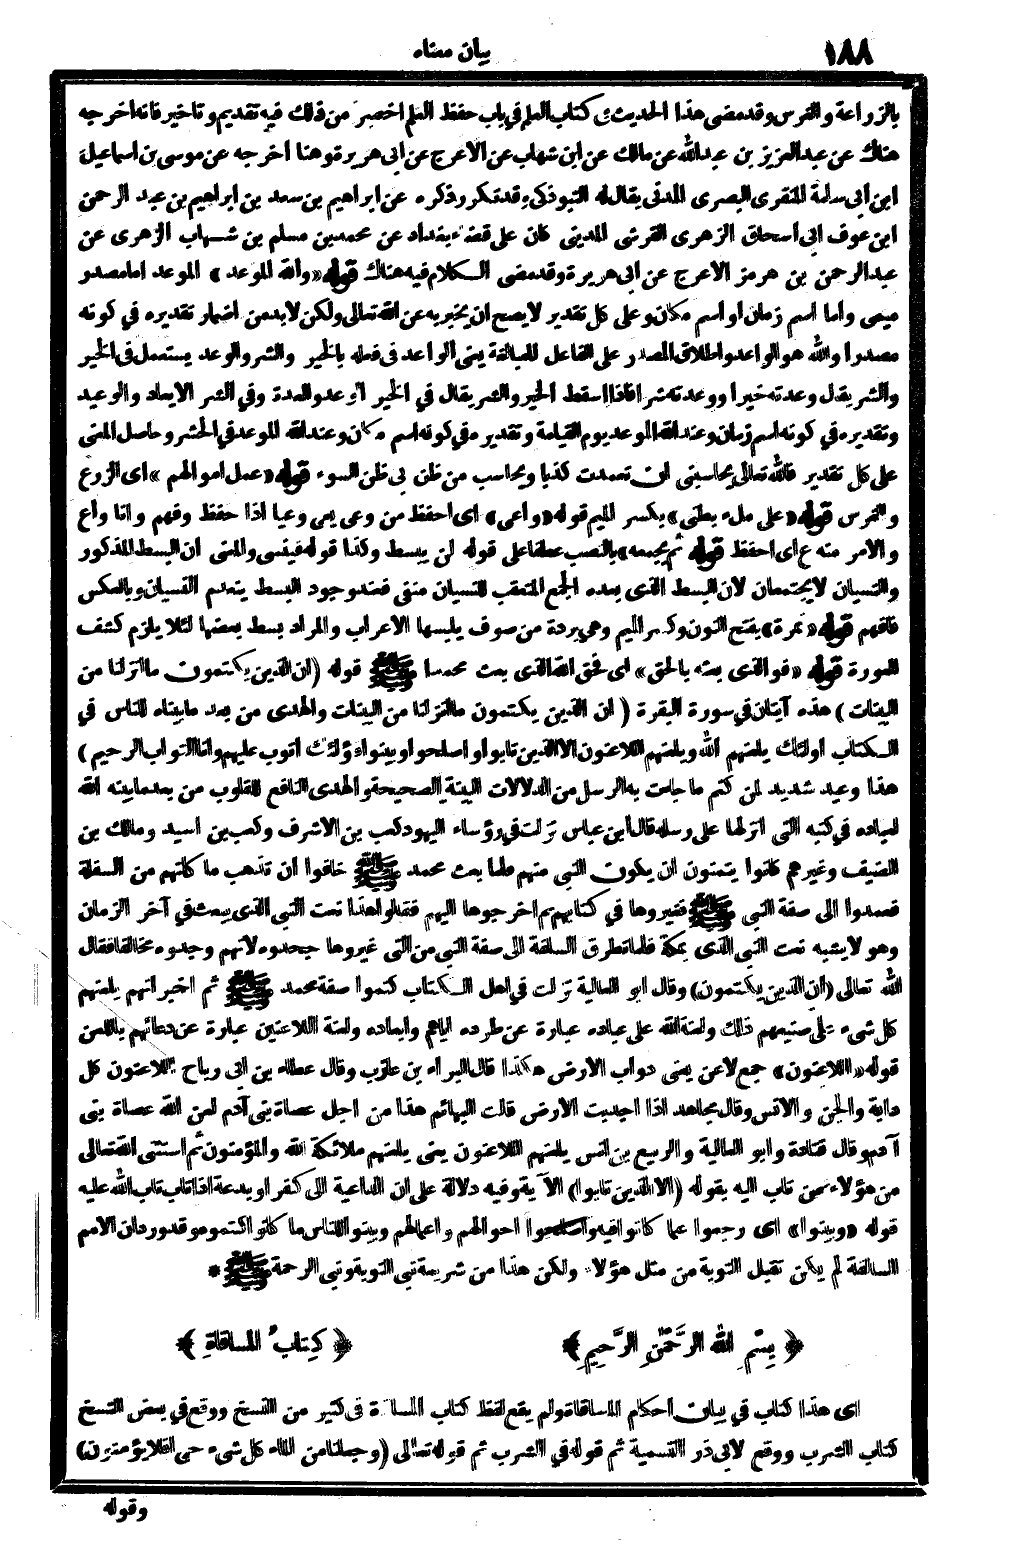 ١٨٨
بيان معناه
بالزراعة والغرس وقد مضى هذا الحديث في كتاب العلم في باب حفظ العلم اخصر من ذلك فيه تقديم وتاخير فانه اخرجه
هناك عن عبدالعزيز بن عبدالله عن مالك عن ابن شهاب عن الاعرج عن ابي هريرة وهنا اخرجه عن موسى بن اسماعيل
ابن ابي سلمة المنقرى البصرى المدنى يقال له التبوذكى وقد تكرر ذكره عن ابراهيم بن سعد بن ابراهيم بن عبد الرحمن
ابن عوف ابى اسحاق الزهرى القرشى المدينى كان على قضاء بغداد عن محمد بن مسلم بن شهاب الزهرى عن
عبدالرحمن بن هرمز الاعرج عن ابى هريرة وقد مضى الكلام فيه هناك قوله «والله الموعد» الموعد اما مصدر
ميمى واما اسم زمان او اسم مكان وعلى كل تقدير لا يصح ان يخبر به عن الله تعالى ولكن لابد من اضمار تقديره في كونه
مصدرا والله هو الواعد واطلاق المصدر على الفاعل للمبالغة يعنى الواعد فى فعله بالخير والشر والوعد يستعمل في الخير
والشر يقال وعدته خيرا ووعدته شرا فاذا اسقط الخير والشر يقال في الخير الوعد والعدة وفي الشر الايعاد والوعيد
وتقديره في كونه اسم زمان وعند الله الموعد يوم القيامة وتقديره في كونه اسم مكان وعند الله الموعد في الحشر وحاصل المعنى
على كل تقدير فالله تعالى يحاسبنى ان تعمدت كذبا ويحاسب من ظن بى ظن السوء قوله «عمل اموالهم» اى الزرع
والغرس قوله «على ملء بطنى» بكسر الميم قوله «واعى» اى احفظ من وعى يعى وعيا اذا حفظ وفهم وانا واع
والامر منه ع اى احفظ قوله «ثم يجمعه» بالنصب عطفا على قوله لن يبسط وكذا قوله فينسى والمعنى ان البسط المذكور
والنسيان لا يجتمعان لان البسط الذى بعده الجمع المتعقب للنسيان منفى فعند وجود البسط ينعدم النسيان وبالعكس
فافهم قوله «نمرة» بفتح النون وكسر الميم وهى بردة من صوف يلبسها الاعراب والمراد بسط بعضها لئلا يلزم كشف
العورة قوله «فو الذى بعثه بالحق» اى فحق الله الذى بعث محمدا ﷺ قوله (ان الذين يكتمون ما انزلنا من
البينات) هذه آيتان في سورة البقرة (ان الذين يكتمون ما انزلنا من البينات والهدى من بعد ما بيناه للناس في
الكتاب اولئك يلعنهم الله ويلعنهم اللاعنون الا الذين تابوا واصلحوا وبينوا فاولئك اتوب عليهم وانا التواب الرحيم)
هذا وعيد شديد لمن كتم ما جاءت به الرسل من الدلالات البينة الصحيحة والهدى النافع للقلوب من بعد ما بينه الله
لعباده في كتبه التى انزلها على رسله قال ابن عباس نزلت في رؤساء اليهود كعب بن الاشرف وكعب بن اسيد ومالك بن
الضيف وغيرهم كانوا يتمنون ان يكون النبى منهم فلما بعث محمد ﷺ خافوا ان تذهب ما كلتهم من السفلة
فعمدوا الى صفة النبي ﷺ فغيروها في كتابهم ثم اخرجوها اليهم فقالوا هذا نعت النبي الذى يبعث في آخر الزمان
وهو لا يشبه نعت النبى الذى بمكة فلما نظرت السفلة الى صفة النبي من التى غيروها جحدوه لانهم وجدوه مخالفا فقال
الله تعالى (ان الذين يكتمون) وقال ابو العالية نزلت في اهل الكتاب كتموا صفة محمد ﷺ ثم اخبر انهم يلعنهم
كل شىء على صنيعهم ذلك ولعنة الله على عباده عبارة عن طرده اياهم وابعاده ولعنة اللاعنين عبارة عن دعائهم باللعن
قوله «اللاعنون» جمع لاعن يعنى دواب الارض هكذا قال البراء بن عازب وقال عطاء بن ابى رباح اللاعنون كل
دابة والجن والانس وقال مجاهد اذا اجدبت الارض قالت البهائم هذا من اجل عصاة بنى آدم لعن الله عصاة بنى
آدم وقال قتادة وابو العالية والربيع بن انس يلعنهم اللاعنون يعنى يلعنهم ملائكة الله والمؤمنون ثم استثنى الله تعالى
من هؤلاء من تاب اليه بقوله (الا الذين تابوا) الآية وفيه دلالة على ان الداعية الى كفر او بدعة اذا تاب تاب الله عليه
قوله «وبينوا» اى رجعوا عما كانوا فيه واصلحوا احوالهم واعمالهم وبينوا للناس ما كانوا كتموه وقد ورد ان الامم
السالفة لم يكن تقبل التوبة من مثل هؤلاء ولكن هذا من شريعة نبي التوبة ونبي الرحمة ﷺ *
﴿ بِسْمِ اللهِ الرَّحْمٰنِ الرَّحِيمِ ﴾
﴿ كِتَابُ المساقاةِ ﴾
اى هذا كتاب في بيان احكام المساقاة ولم يقع لفظ كتاب المساقاة فى كثير من النسخ ووقع في بعض النسخ
كتاب الشرب ووقع لابى ذر التسمية ثم قوله في الشرب ثم قوله تعالى (وجعلنا من الماء كل شىء حى افلا يؤمنون)
وقوله